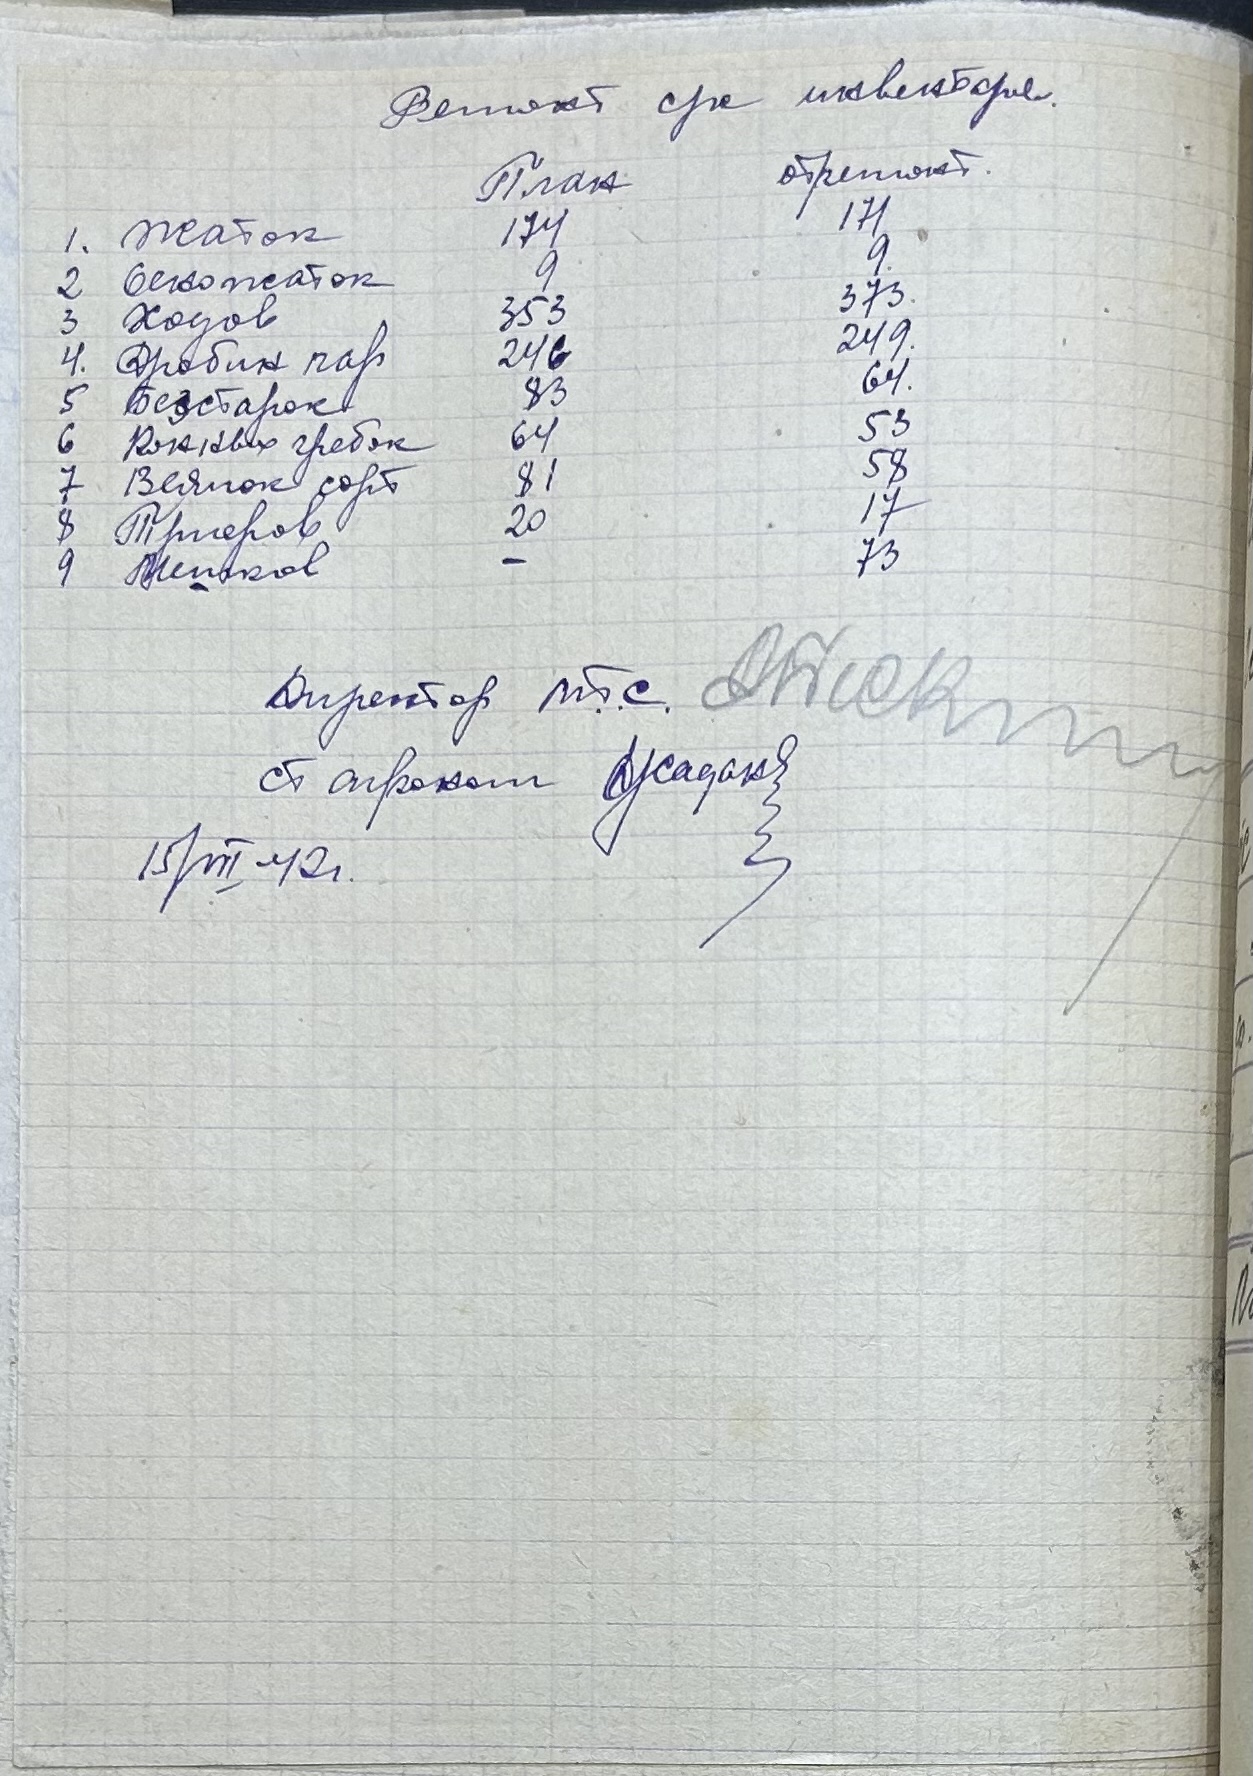 Ремонт срк инвентаря.
План отремонт.
1. Жаток 174 171
2 Сеножаток 9 9.
3 Ходов 353 373.
4. Дробин пар 246 249.
5 Безстарок 83 64.
6 Конных гребок 64 53
7 Веялок сорт 81 58
8 Триеров 20 17
9 - 73
Директор М.Т.С.
ст агроном
15/VII 42г.